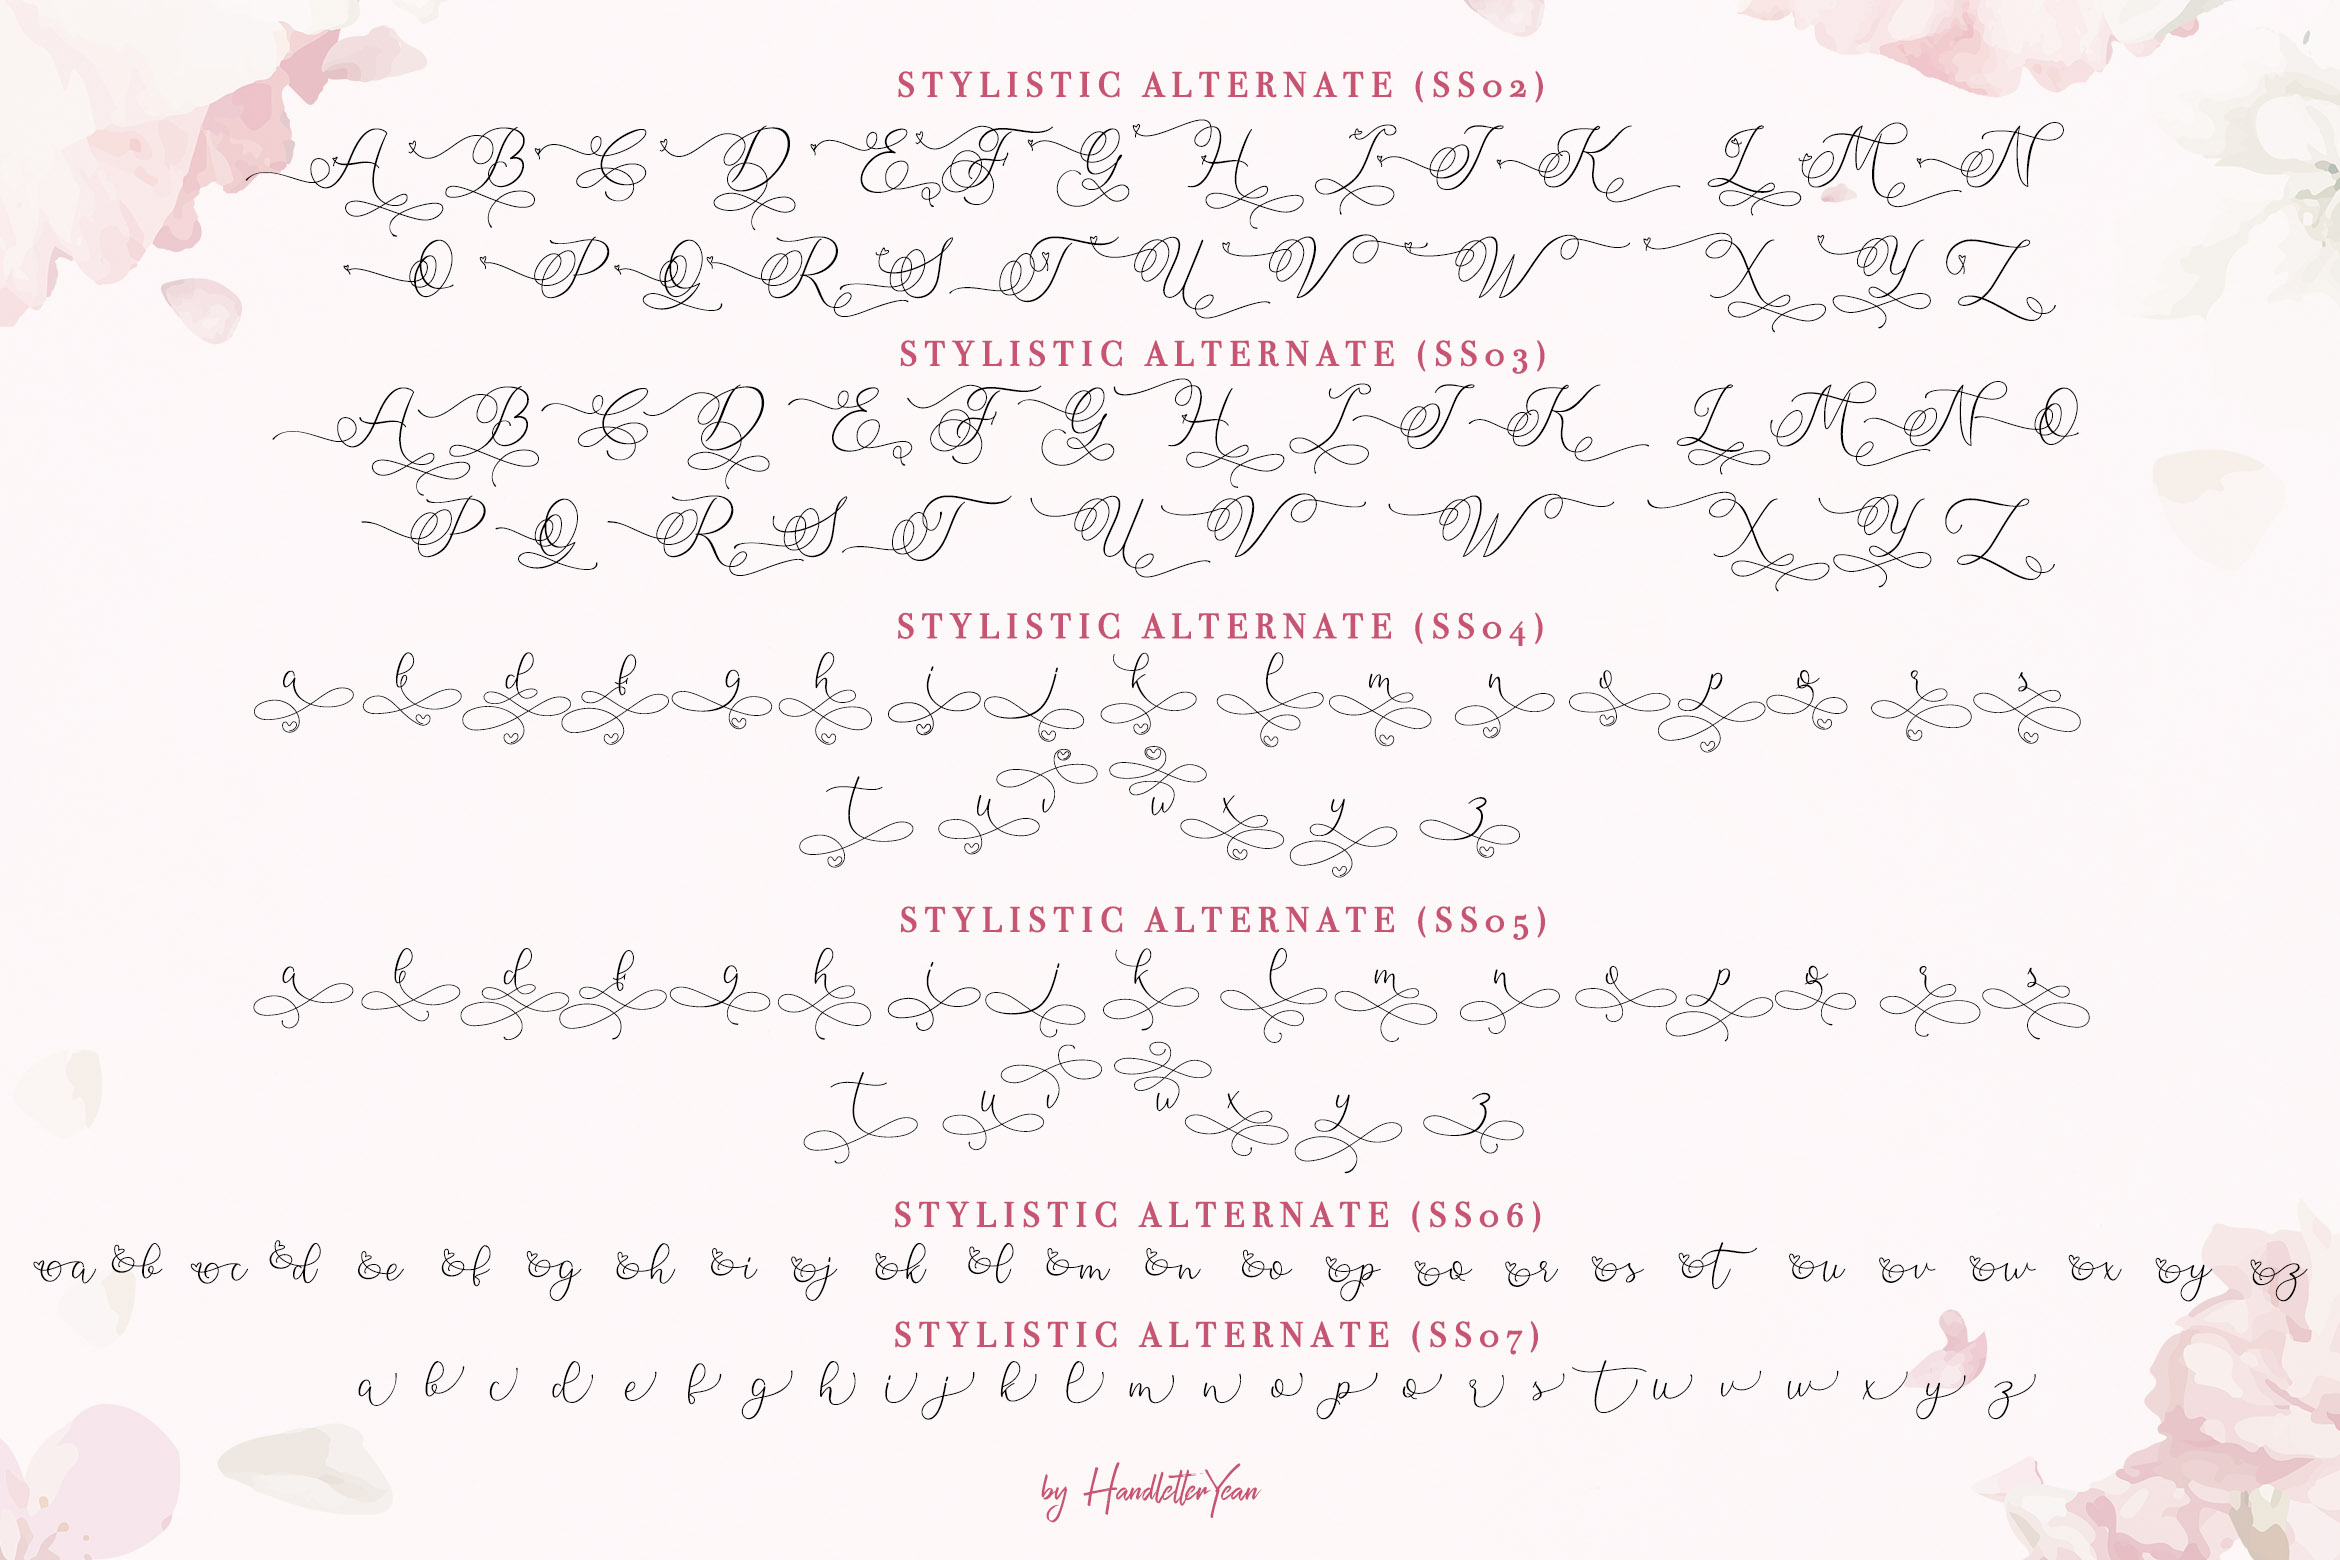 STYLISTIC ALTERNATE (SS02)
A B C D E F G H I J K L M N
O P Q R S T U V W X Y Z
STYLISTIC ALTERNATE (SS03)
A B C D E F G H I J K L M N O
P Q R S T U V W X Y Z
STYLISTIC ALTERNATE (SS04)
a b d f g h i j k l m n o p q r s
t u v w x y z
STYLISTIC ALTERNATE (SS05)
a b d f g h i j k l m n o p q r s
t u v w x y z
STYLISTIC ALTERNATE (SS06)
a b c d e f g h i j k l m n o p q r s t u v w x y z
STYLISTIC ALTERNATE (SS07)
a b c d e f g h i j k l m n o p q r s t u v w x y z
by HandletterYean